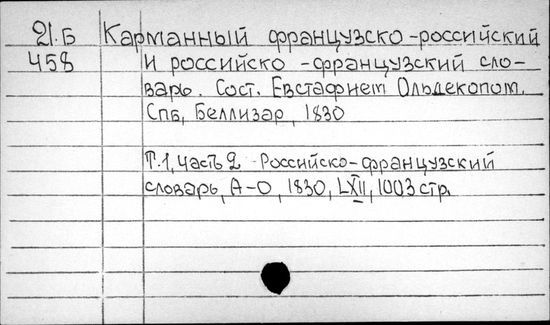 21.Б Карманный французско-российский
458 и российско-французский сло-
варь. Сост. Евстафием Ольдекопом.
Спб, Беллизар, 1830
Т.1, часть 2 Российско-французский
словарь, А-О, 1830, LXII, 1003 стр.